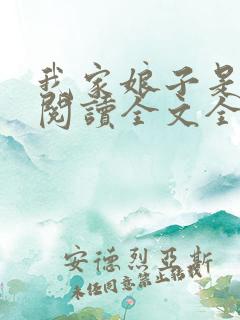 我家娘子是
閱讀全文全
安德烈亞斯
未經同意禁止轉載